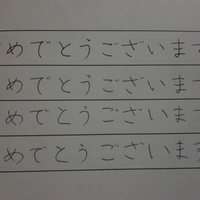 めでとうございます
めでとうございます
めでとうございます
めでとうございます